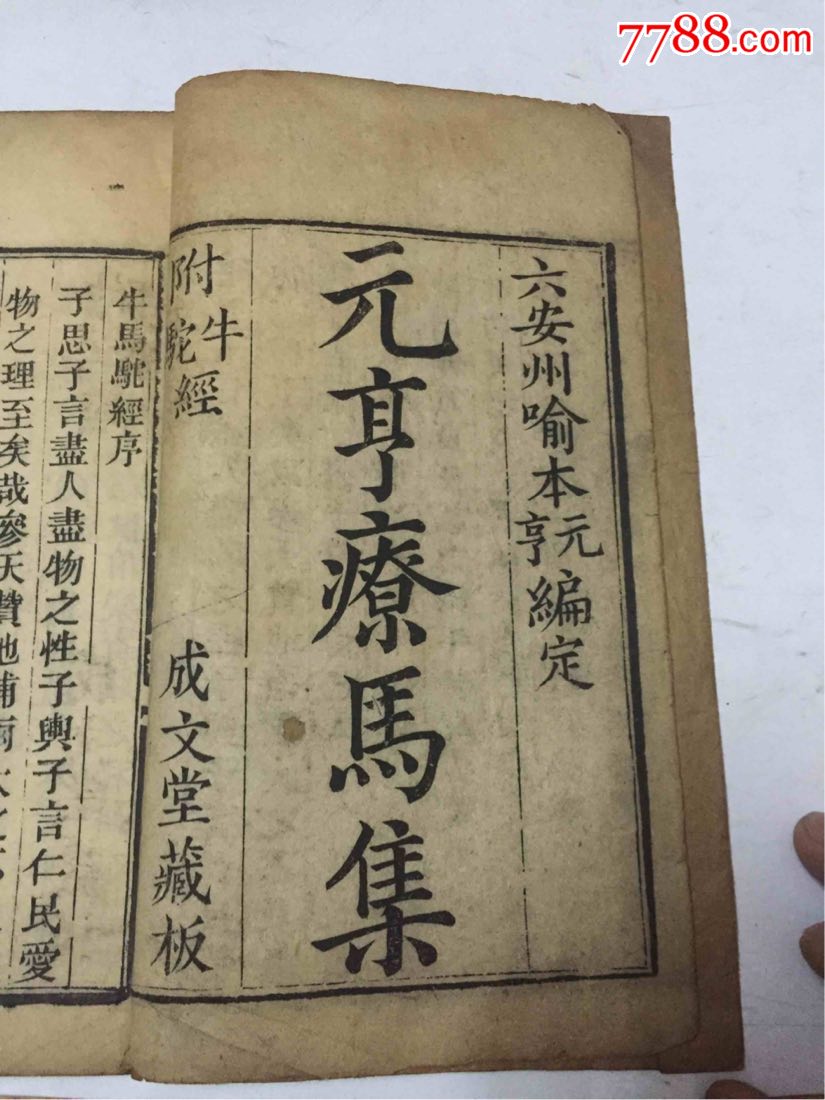 7788.com
六安州喻本元亨編定
元亨療馬集
附牛駝經
成文堂藏板
牛馬駝經序
子思子言盡人盡物之性子輿子言仁民愛
物之理至矣哉參天贊地